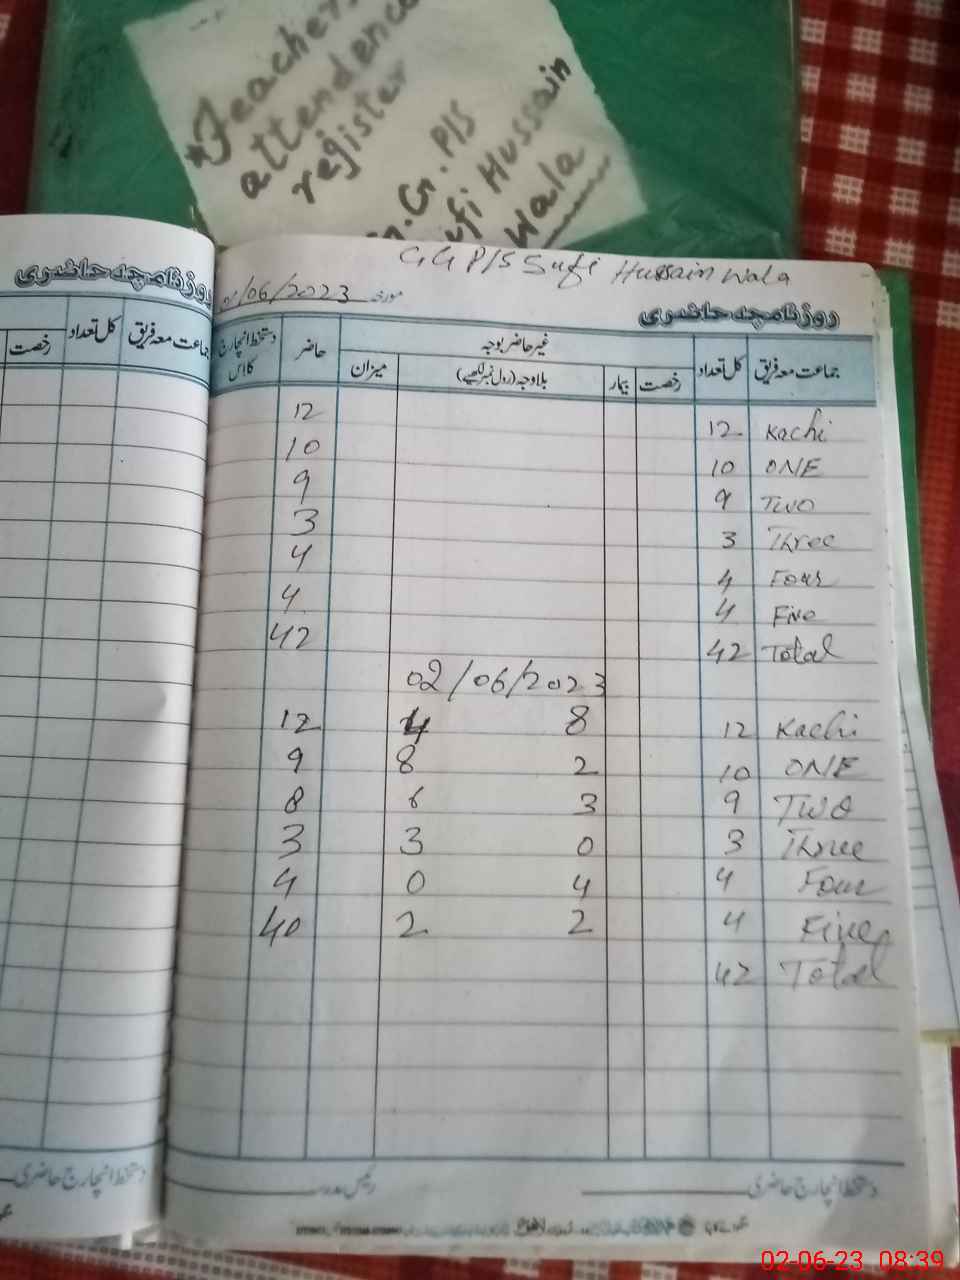 *Teachers
attendence
register
G. P/S
Sufi Hussain
Wala
GGP/S Sufi Hussain Wala
روزنامچہ حاضری
01/06/2023 مورخہ
روزنامچہ حاضری
جماعت معہ فریق کل تعداد رخصت
جماعت معہ فریق کل تعداد غیر حاضر بوجہ حاضر دستخط انچارج کلاس
رخصت بیمار بلاوجہ (رول نمبر لکھیے) میزان
12 12 Kachi
10 10 ONE
9 9 Two
3 3 Three
4 4 Four
4 4 Five
42 42 Total
02/06/2023
12 4 8 12 Kachi
9 8 2 10 ONE
8 6 3 9 TWO
3 3 0 3 Three
4 0 4 4 Four
40 2 2 4 Five
42 Total
دستخط انچارج حاضری
دستخط انچارج حاضری رئیس مدرسہ
02-06-23 08:39